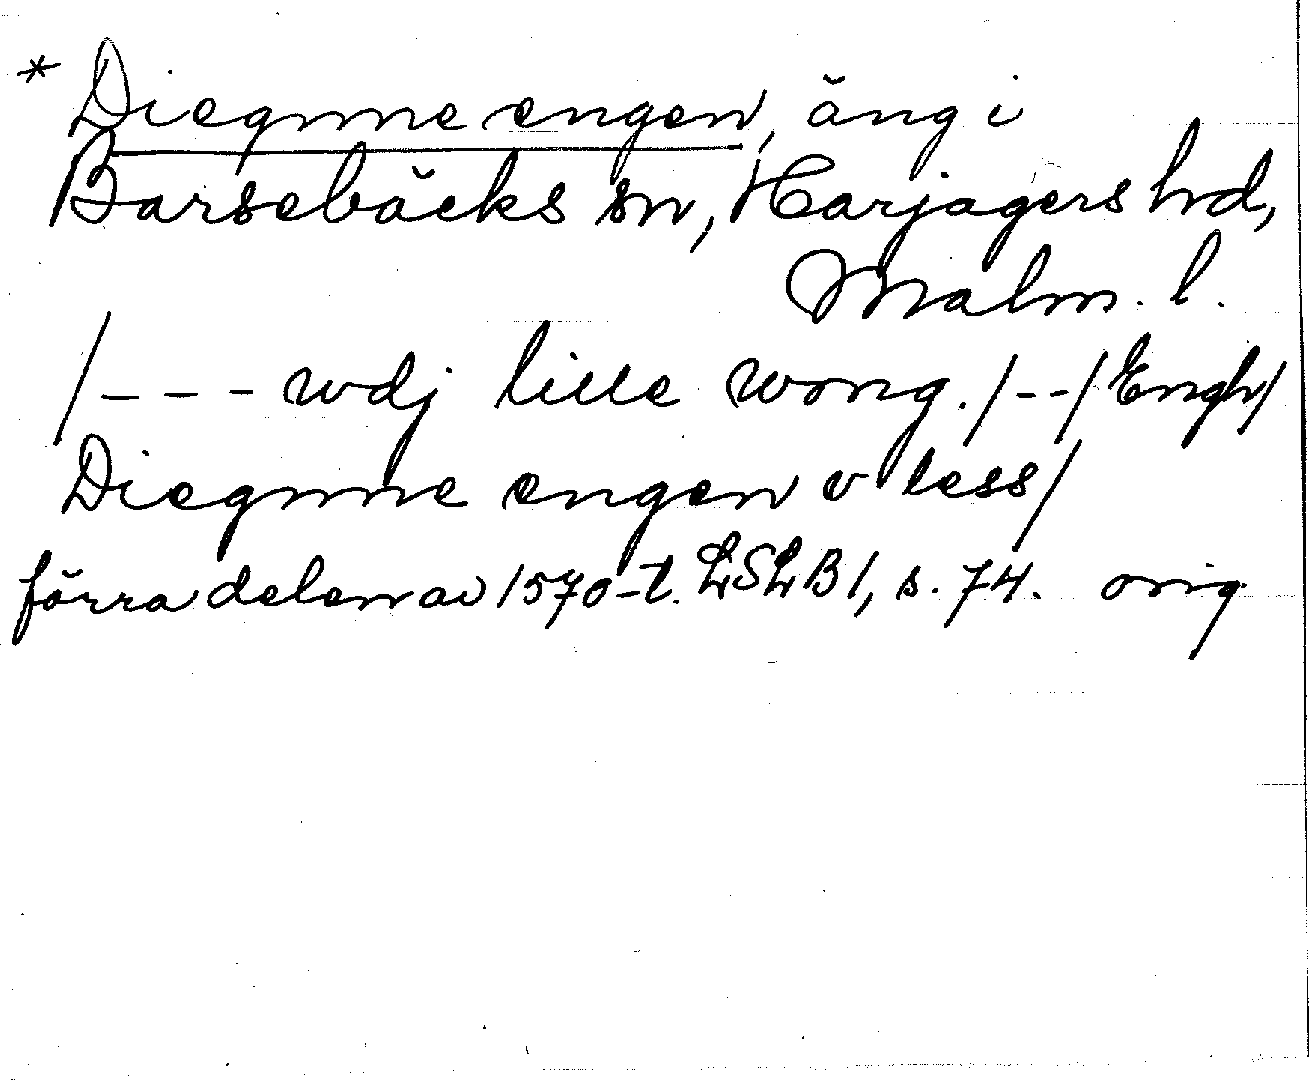 * Diegnne engen, äng i
Barsebäcks sn, Harjagers hrd,
Malm. l.
/--- wdj lille wong. /--/ Engh/
Diegnne engen v less/
förra delen av 1570-t. LSLB 1, s. 74. orig.